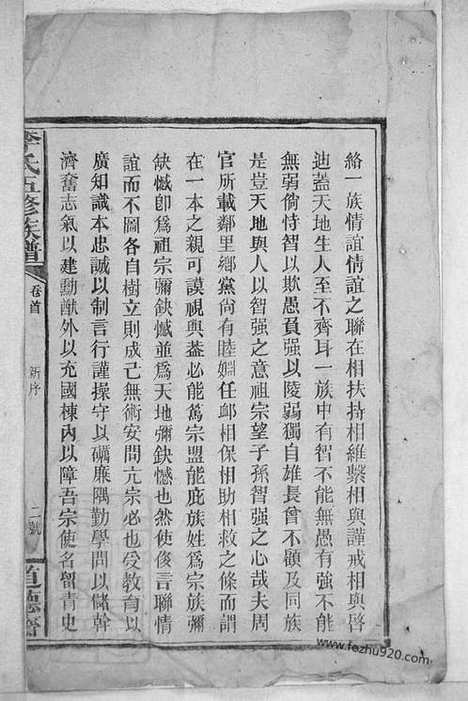 絡一族情誼情誼之聯在相扶持相維繫相與謹戒相與啓
迪蓋天地生人至不齊耳一族中有智不能無愚有強不能
無弱倘恃智以欺愚負强以陵弱獨自雄長曾不顧及同族
是豈天地與人以智强之意祖宗望子孫智强之心哉夫周
官所載鄰里鄉黨尙有睦婣任卹相保相助相救之條而謂
在一本之親可謨視與葢必能篤宗盟能庇族姓爲宗族彌
缺憾卽爲祖宗彌缺憾並爲天地彌缺憾也然使侈言聯情
誼而不圖各自樹立則成己無術安問亢宗必也受教育以
廣知識本忠誠以制言行謹操守以礪廉隅勤學問以儲幹
濟奮志氣以建勳猷外以充國棟內以障吾宗使名留青史
李氏五修族譜
卷首
新序
二號
道德堂
www.fezhu920.com